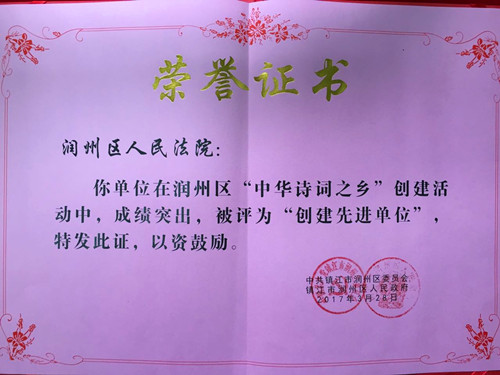 荣誉证书
润州区人民法院：
你单位在润州区“中华诗词之乡”创建活
动中，成绩突出，被评为“创建先进单位”，
特发此证，以资鼓励。
中共镇江市润州区委员会
镇江市润州区人民政府
2017年3月28日